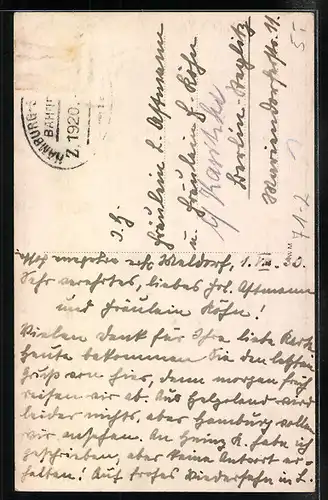 HAMBURG
BAHN
Z. 1920
I. H.
Fräulein L. Astmann
u. Fräulein H. Köhn
b/ Karitzke
Berlin-Steglitz
Mariendorferstr. 11.
5-
71-2
Meldorf, 1. VIII. 20.
Sehr verehrtes, liebes Frl. Astmann
und Fräulein Köhn!
Vielen Dank für Ihre liebe Karte
Heute bekommen Sie den letzten
Gruß von hier, denn morgen früh
reisen wir ab. Aus Helgoland wird
leider nichts, aber Hamburg wollen
wir ansehen. An Heinz K. habe ich
geschrieben, aber keine Antwort er-
halten! Auf frohes Wiedersehn in L.